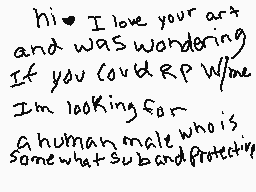 hi♥ I love your art
and was wondering
If you could RP w/me
Im looking for
a human male who is
somewhat sub and protective